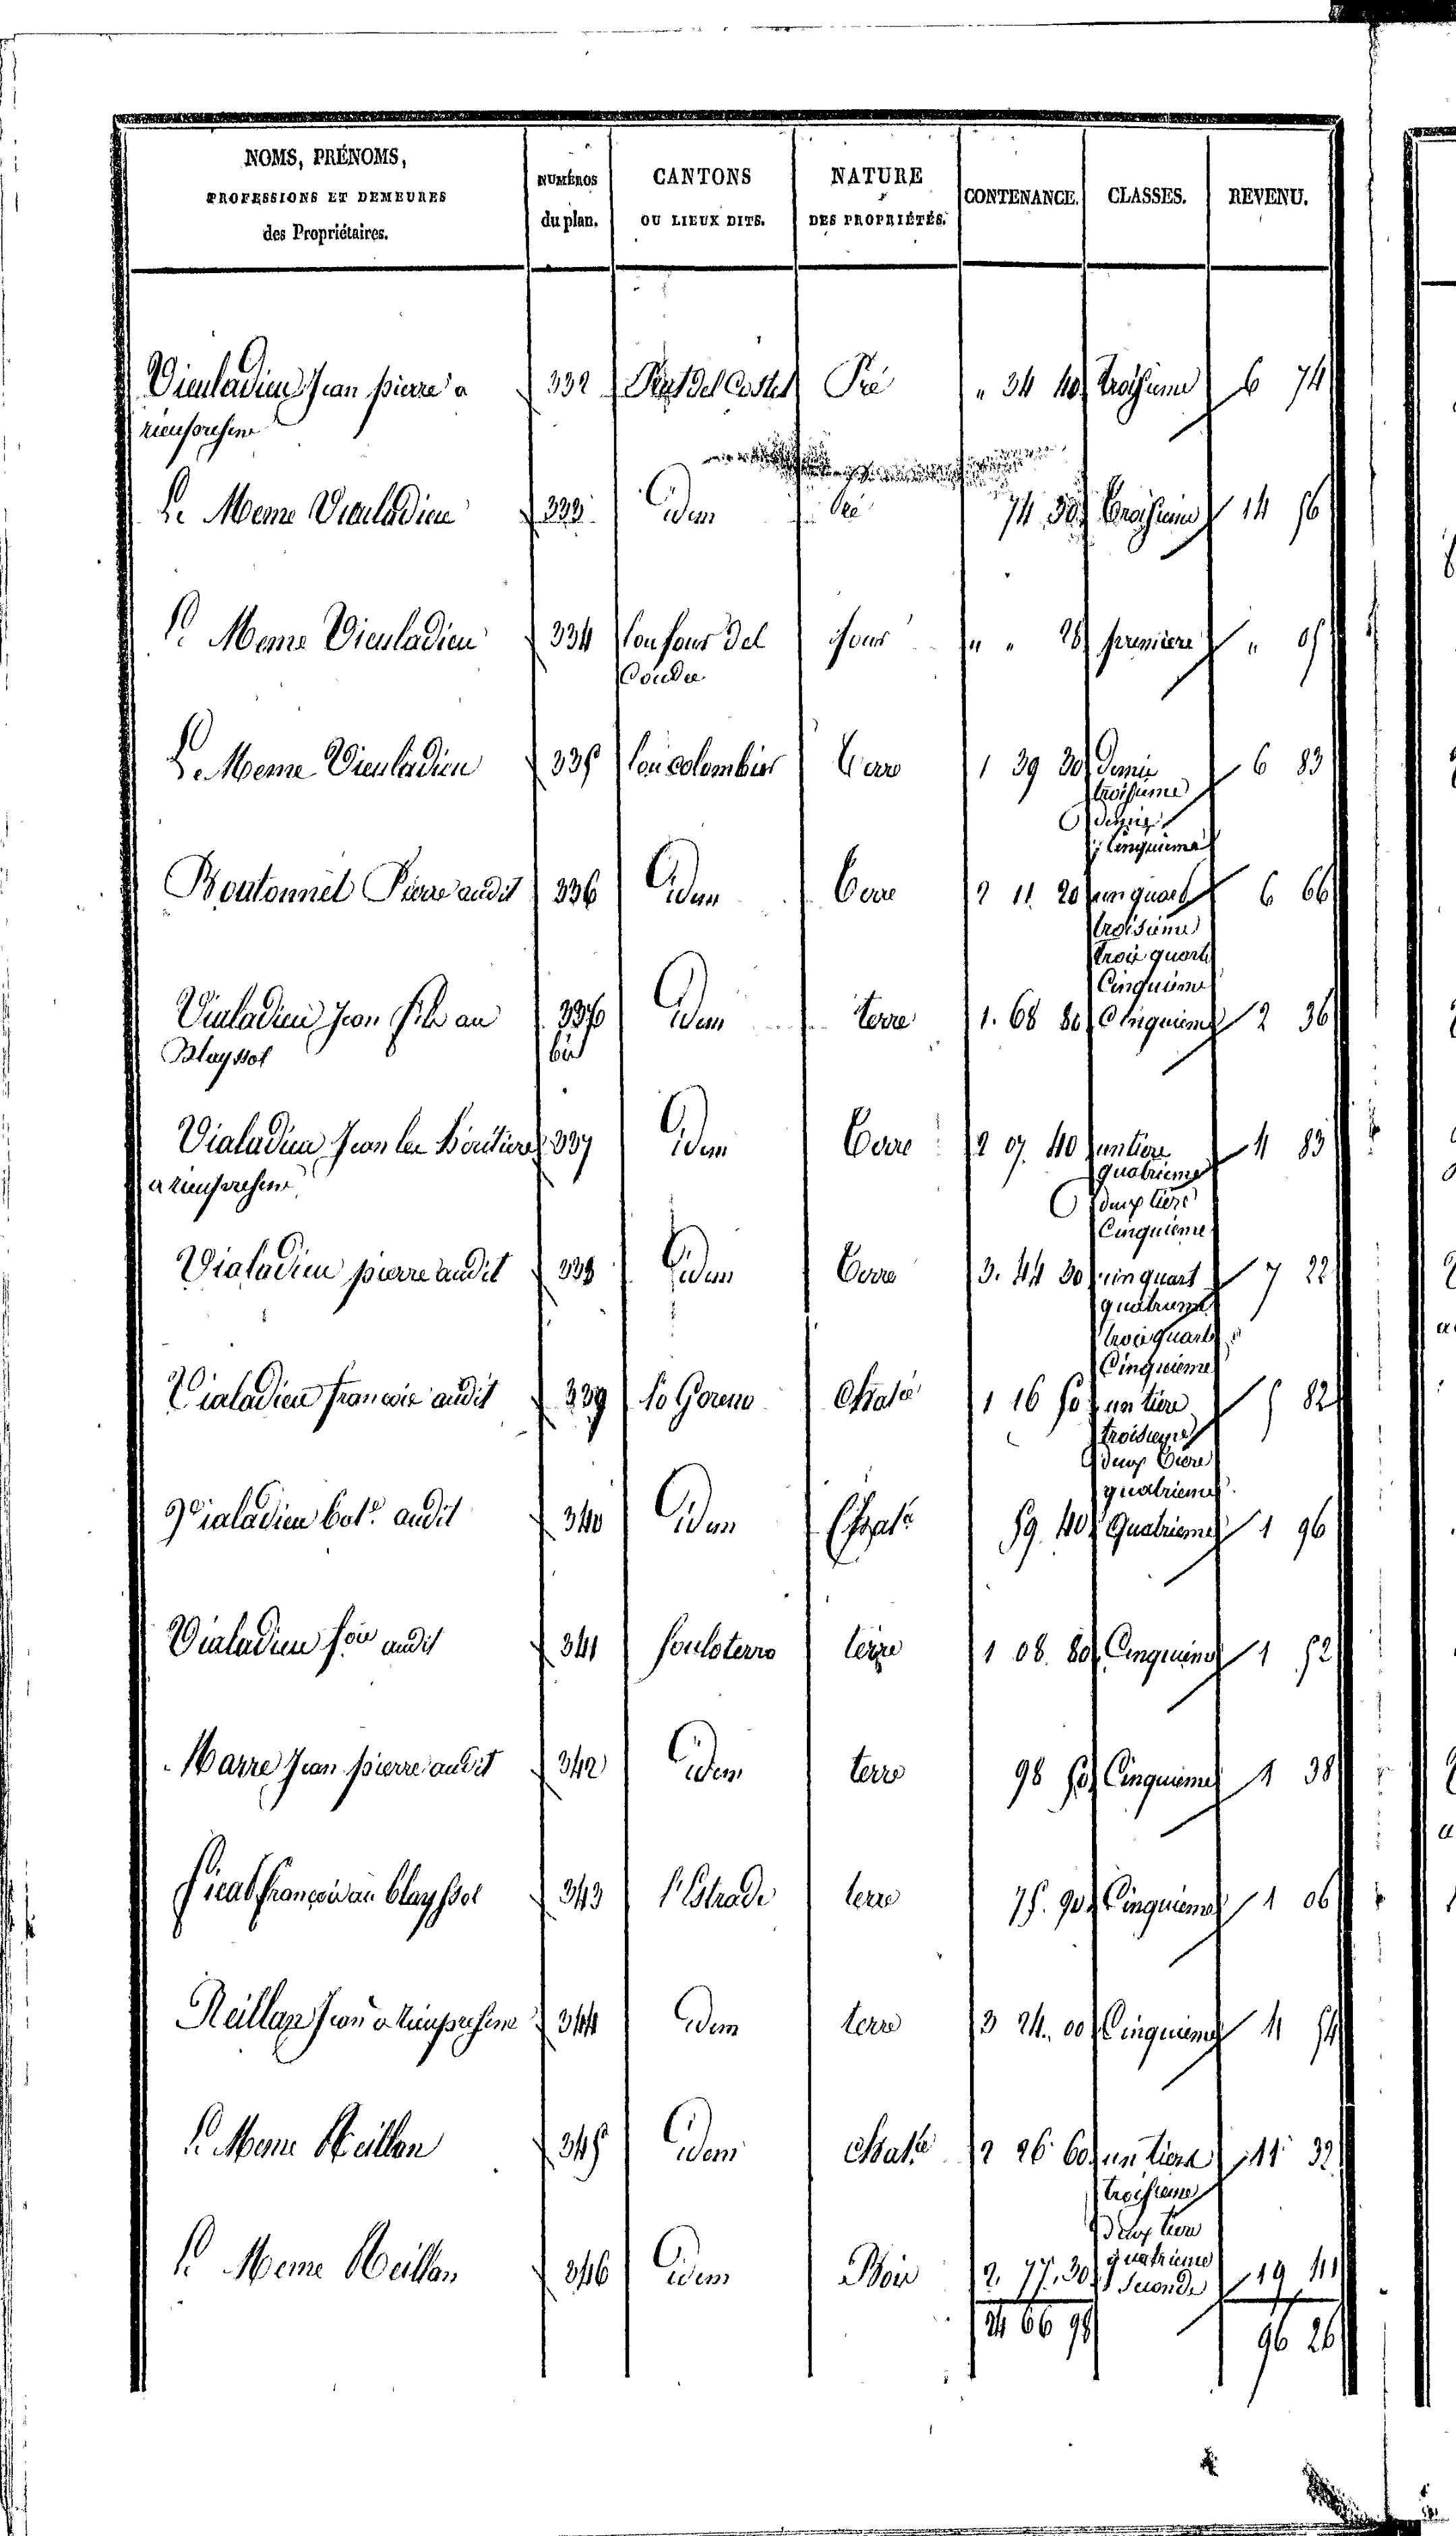 NOMS, PRÉNOMS, PROFESSIONS ET DEMEURES des Propriétaires. NUMÉROS du plan. CANTONS OU LIEUX DITS. NATURE DES PROPRIÉTÉS. CONTENANCE. CLASSES. REVENU.
Vieuladieu Jean pierre a 332 Pré „ 34 40 troisieme 6 74
Le Meme Vieuladieu 333 idem Pré 74 30 troisieme 14 56
Le Meme Vieuladieu 334 lou four del four „ „ 28 premiere „ 05
Coudere
Le Meme Vieuladieu 335 lou colombier terre 1 39 30 demie 6 83
troisieme
demie
Cinquieme
Boutonnet Pierre audit 336 idem terre 2 11 20 un quart 6 66
troisieme
trois quarts
Cinquieme
Vialadieu Jean fils au 336 idem terre 1. 68 80 Cinquieme 2 36
Blayssol bis
Vialadieu Jean les héritiers 337 idem terre 2 07 40 un tiers 4 83
quatrieme
deux tiers
Cinquieme
Vialadieu pierre audit 338 idem terre 3. 44 30 un quart 7 22
quatrieme
trois quarts
Cinquieme
Vialadieu francois audit 339 lo Goreno Chatée 1 16 50 un tiers 5 82
troisieme
deux tiers
quatrieme
Vialadieu bot. audit 340 idem Chat. 59. 40 Quatrieme 1 96
Vialadieu fois audit 341 souloterro terre 1 08. 80 Cinquieme 1 52
Marre Jean pierre audit 342 idem terre 98 50 Cinquieme 1 38
Ficat francois au blayssol 343 l'Estrade terre 75. 90 Cinquieme 1 06
Reillan Jean a 344 idem terre 3 24. 00 Cinquieme 4 54
Le Meme Reillan 345 idem Chat.ée 2 26 60 un tiers 11 32
troisieme
deux tiers
quatrieme
Le Meme Reillan 346 idem Bois 2. 77. 30 Seconde 19 41
24 66 98 96 26